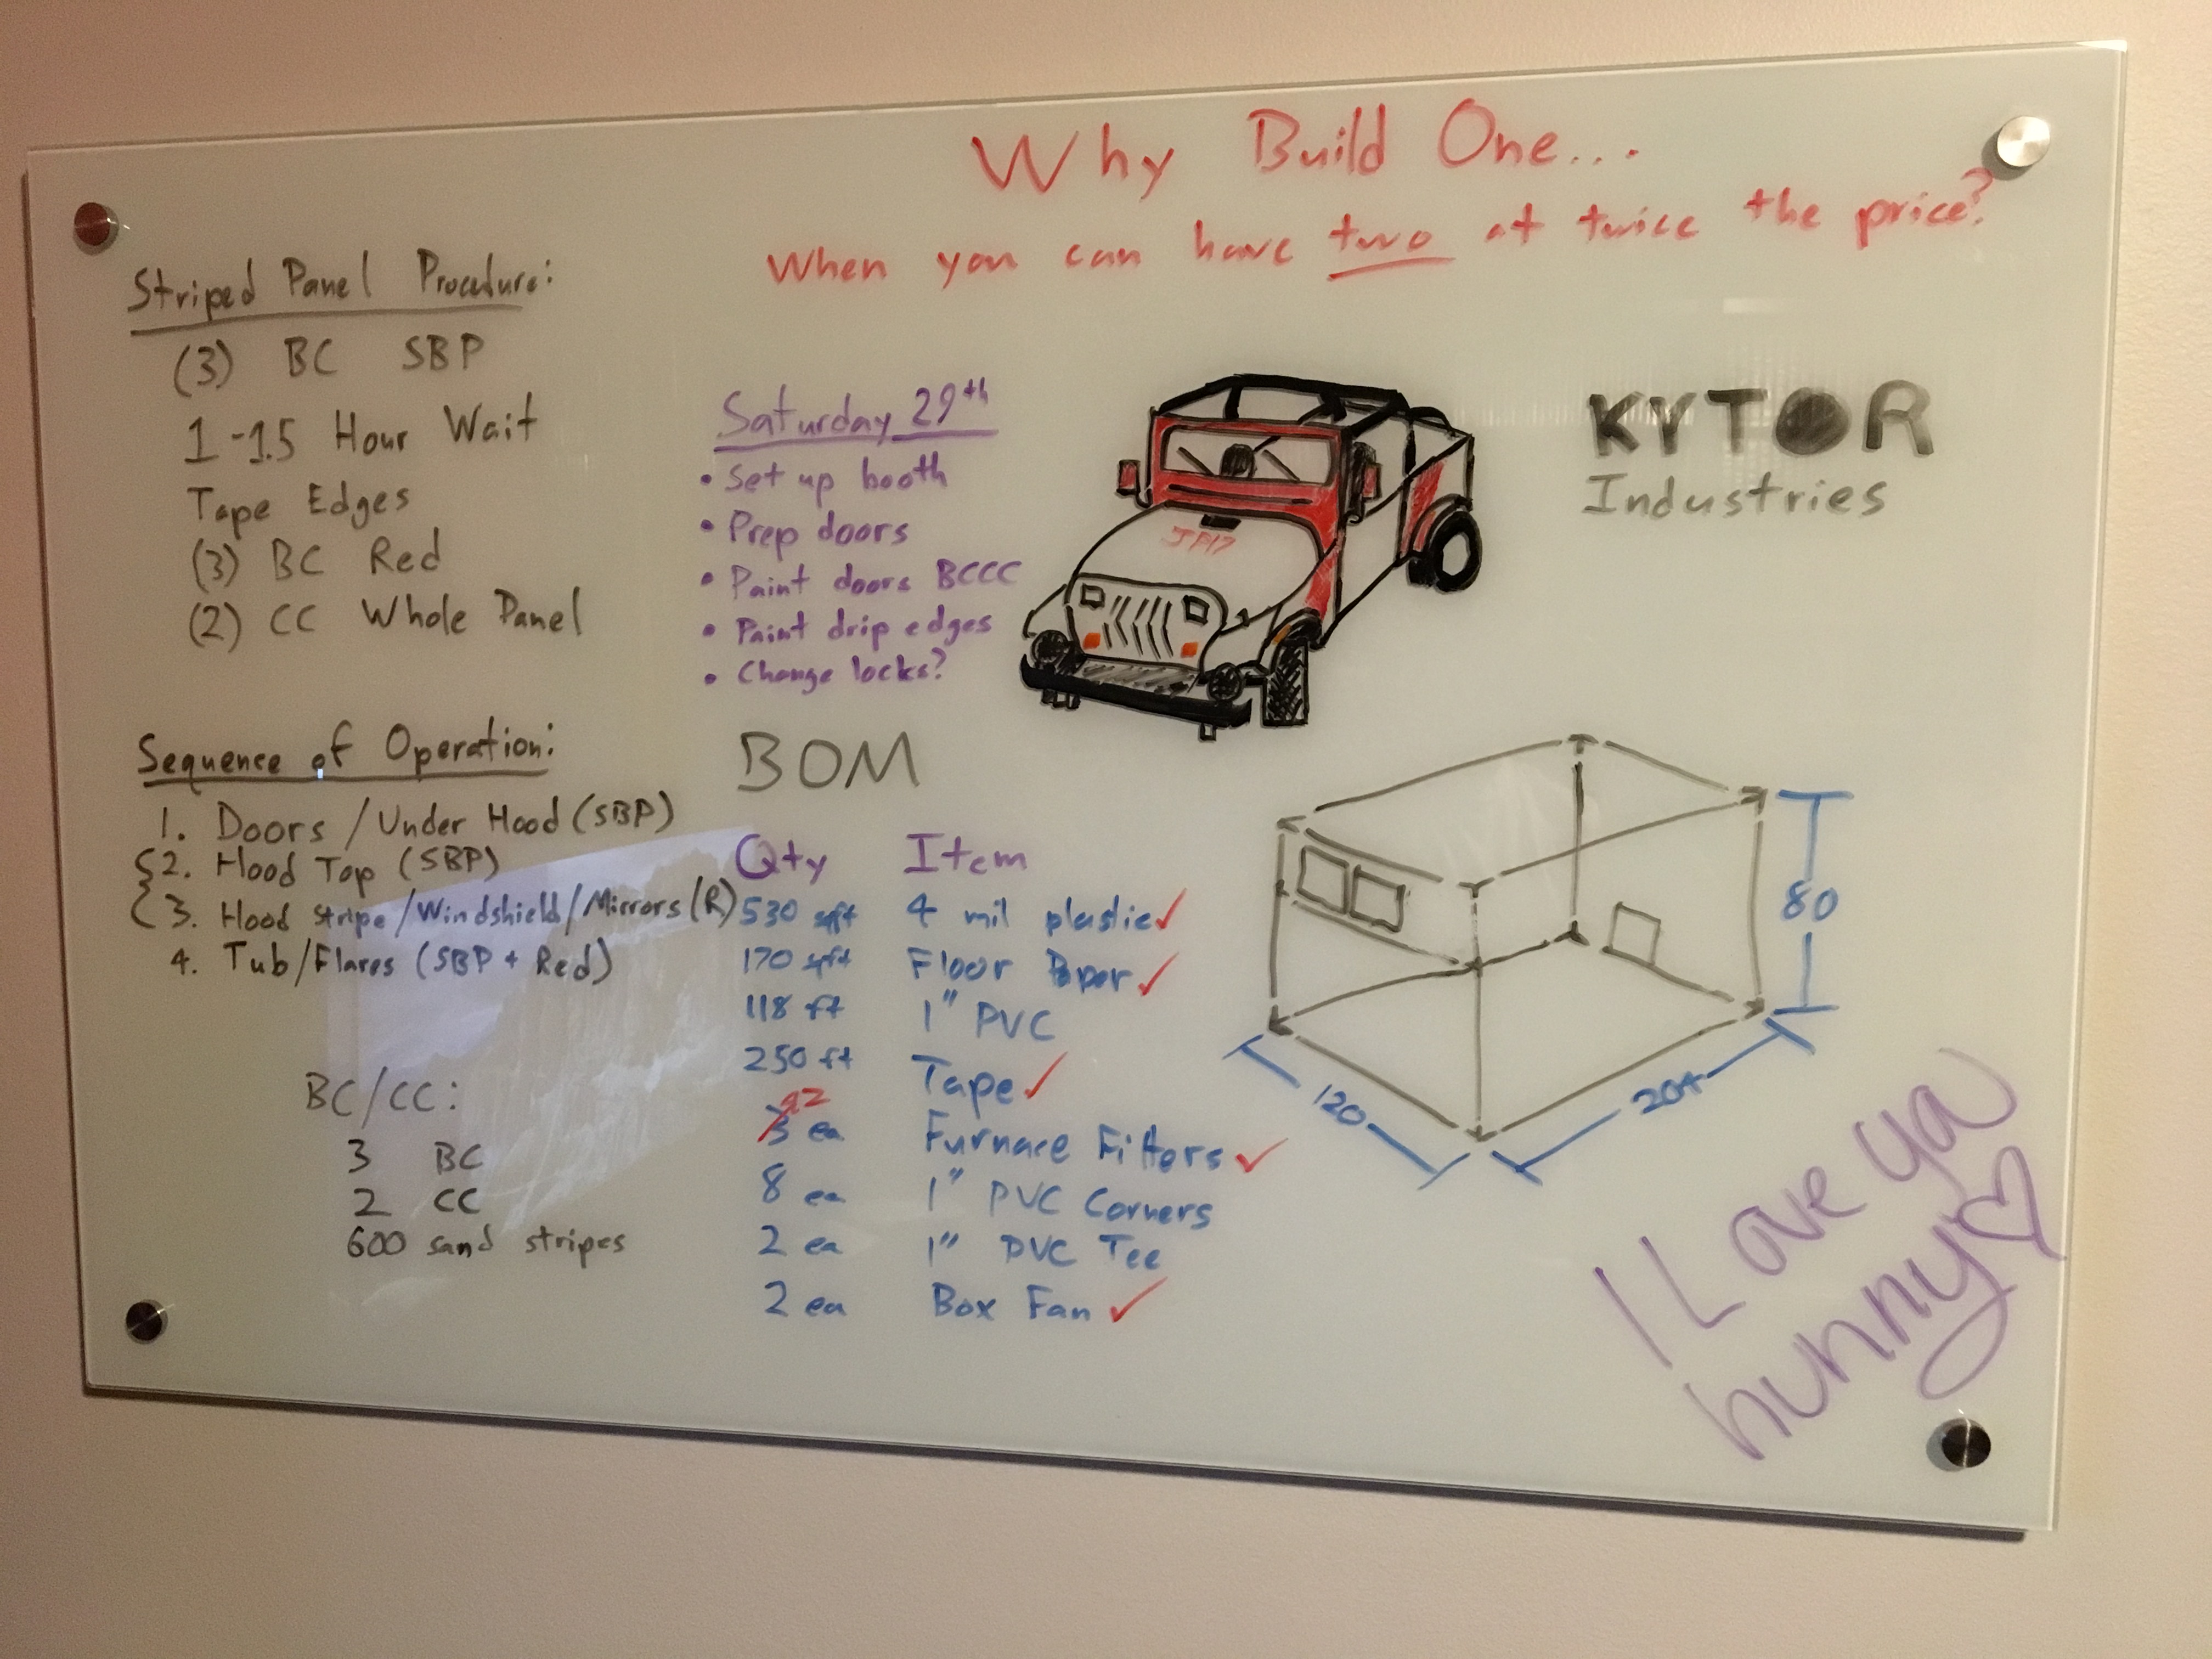 Why Build One...
When you can have two at twice the price?
Striped Panel Procedure:
(3) BC SBP
1-1.5 Hour Wait
Tape Edges
(3) BC Red
(2) CC Whole Panel
Sequence of Operation:
1. Doors / Under Hood (SBP)
2. Hood Top (SBP)
3. Hood stripe/Windshield/Mirrors (R)
4. Tub/Flares (SBP + Red)
BC/CC:
3 BC
2 CC
600 sand stripes
Saturday 29th
• Set up booth
• Prep doors
• Paint doors BCCC
• Paint drip edges
• Change locks?
JP17
KYTOR
Industries
BOM
Qty Item
530 sqft 4 mil plastic ✓
170 sqft Floor Paper ✓
118 ft 1" PVC
250 ft Tape ✓
ea Furnace Filters ✓
8 ea 1" PVC Corners
2 ea 1" PVC Tee
2 ea Box Fan ✓
80
120
204
I Love ya
hunny ♡